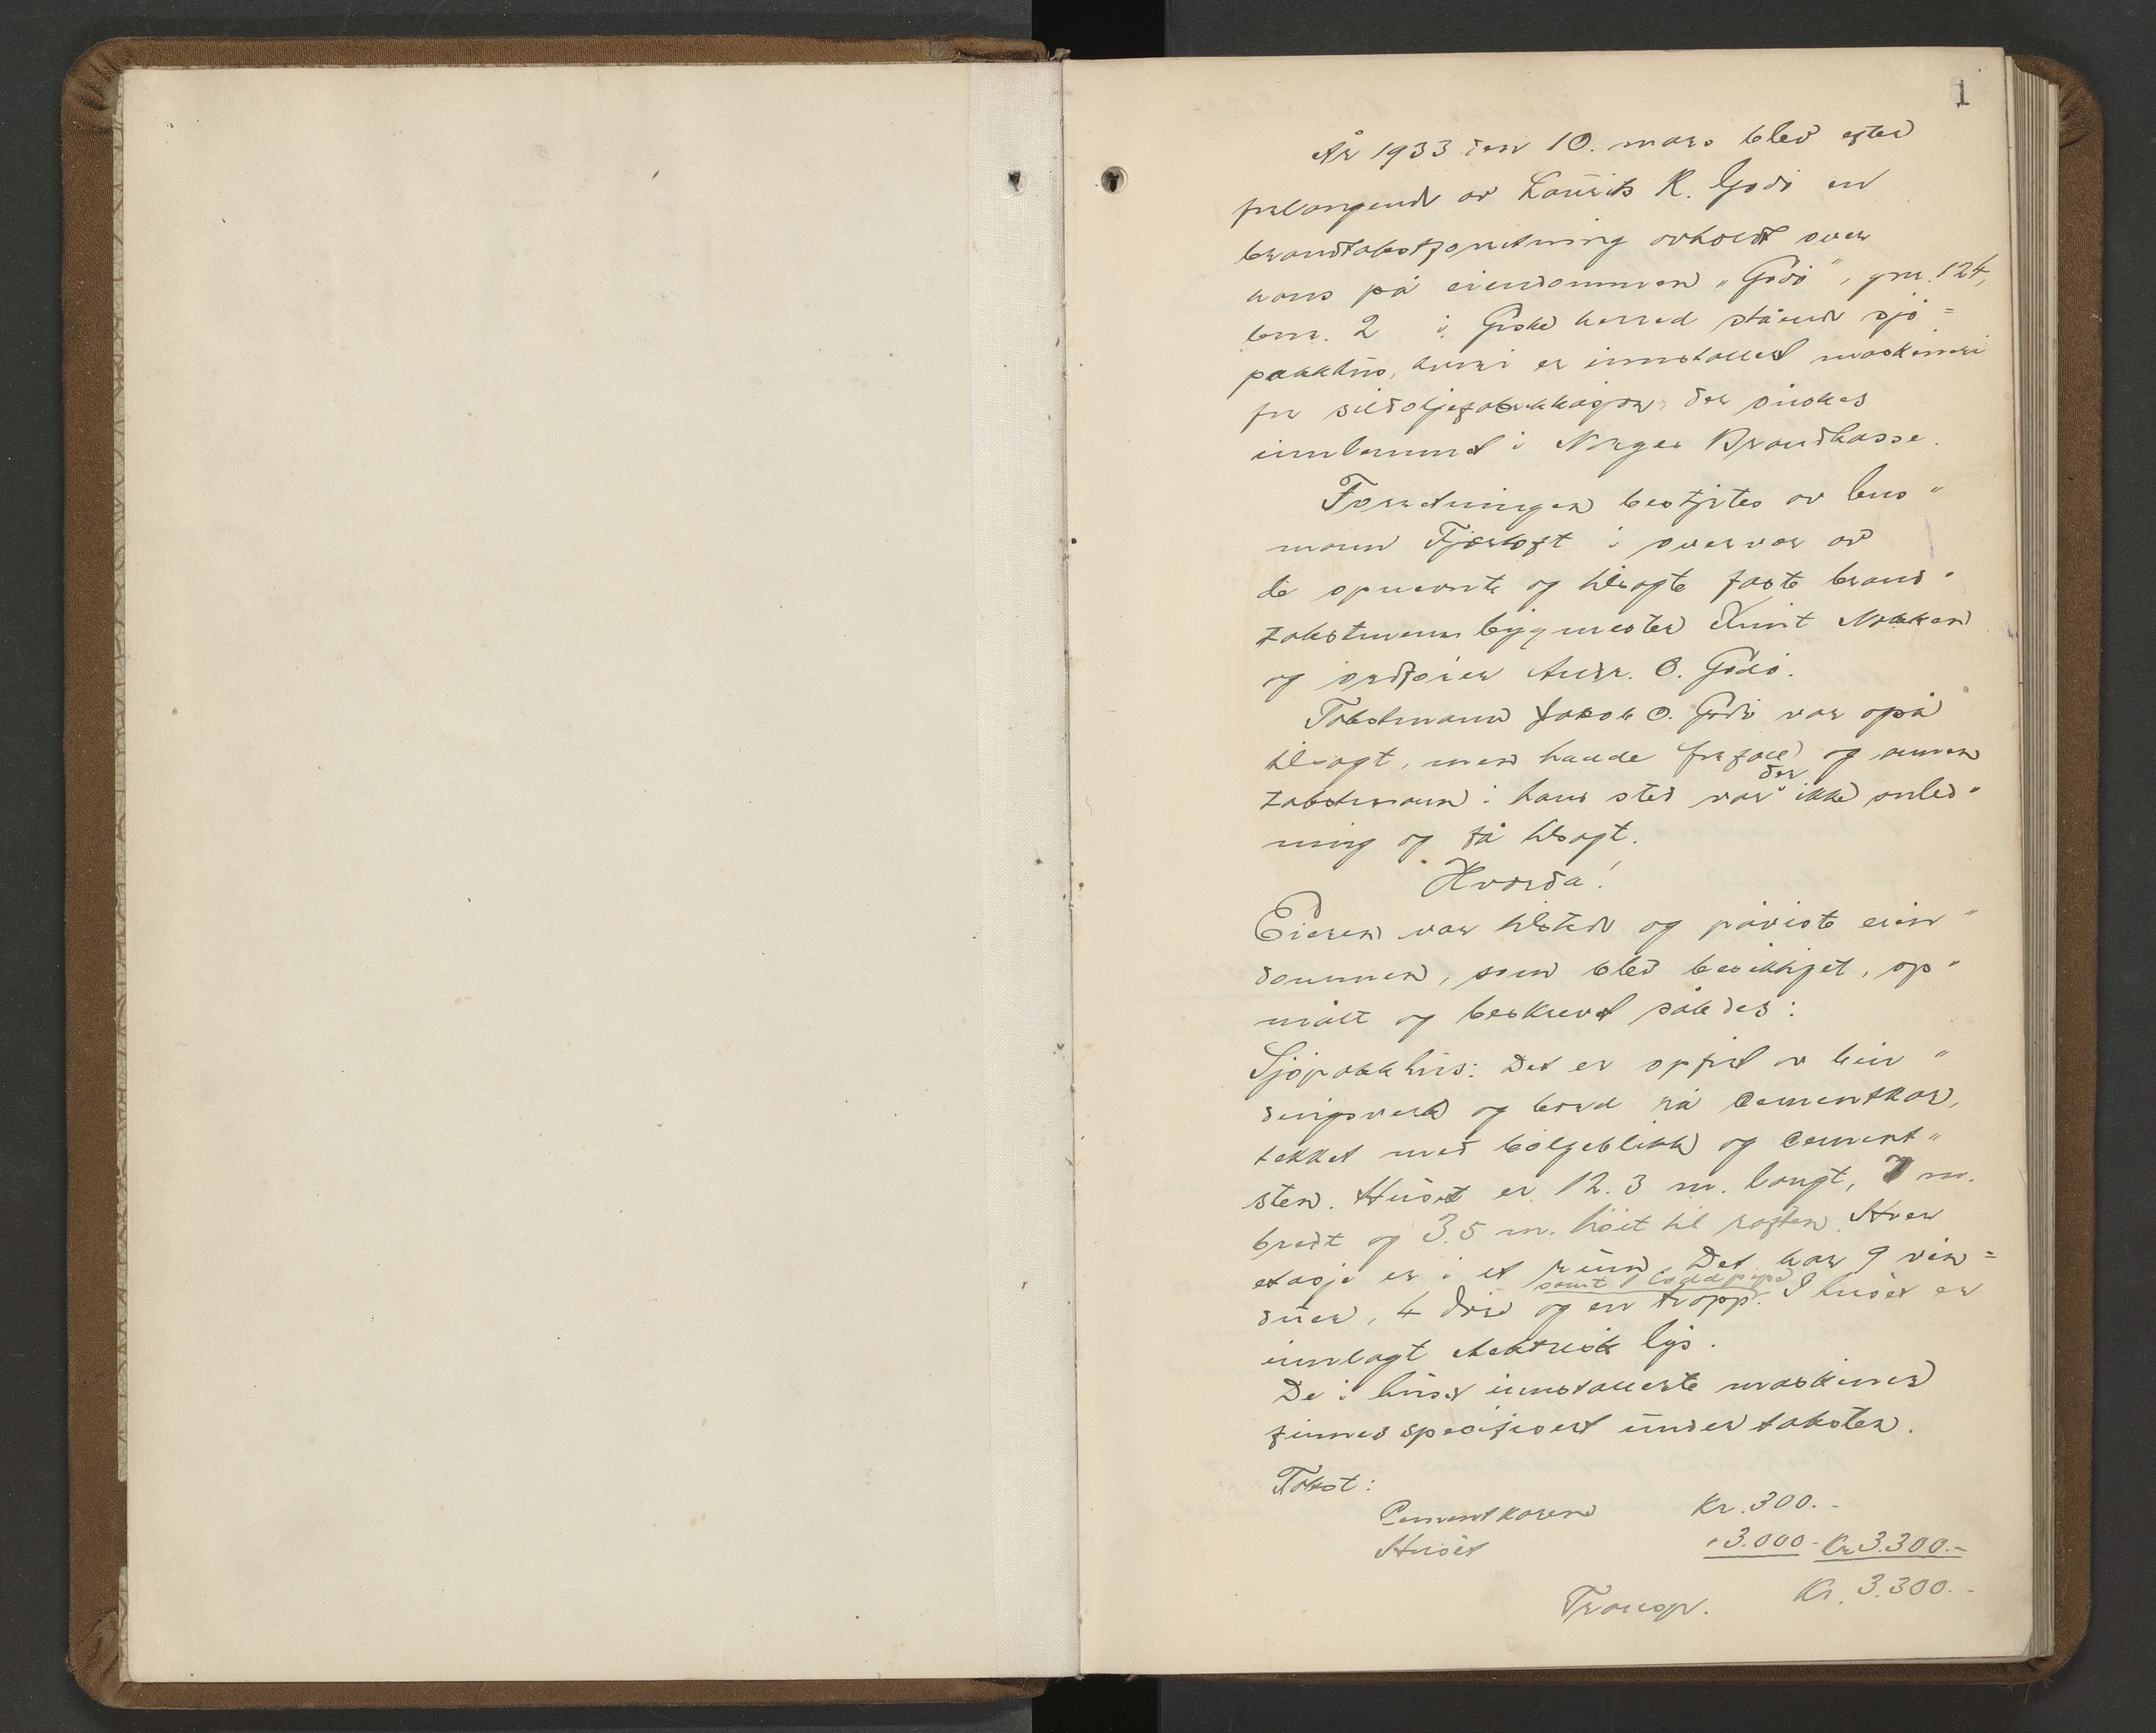 1
År 1933 den 10. mars blev efter
forlangende av Laurits K. Godö en
brandtakstforretning avholdt over
hans på eiendommen „Godö", gnr. 124,
bnr. 2 i Giske herred stående sjö=
pakkhus, hvori er innstallert maskineri
for sildoljefabrikkasjon, der önskes
innlemmet i Norges Brandkasse.
Forretningen bestyrtes av lens"
mann Fjørtoft i overvær av
de opnevnte og tilsagte faste brand"
takstmenn bygmester Knut Nakken
og ordförer Andr. O. Godö.
Takstmann Jakob O. Godö var også
tilsagt, men hadde forfall og annen
takstmann i hans sted var der ikke anled"
ning og få tilsagt.
Hvorda!
Eieren var tilstede og påviste eien"
dommen, som blev besiktiget, op"
målt og beskrevet således:
Sjöpakkhus: Det er opfört av bin"
dingsverk og bord på cementkar,
tekket med bölgeblikk og cement"
sten. Huset er 12.3 m. langt, 7 m.
bredt og 3.5 m. höit til raften. Hver
etasje er i et rum. Det har 9 vin=
samt 1 loddpipe
duer, 4 döre og en trapp. I huset er
innlagt elektrisk lys.
De i huset innstallerte maskiner
finnes spesifisert under taksten.
Takst:
Cementkarene Kr. 300.-
Huset " 3.000.- Kr. 3.300.-
Transp. Kr. 3.300.-